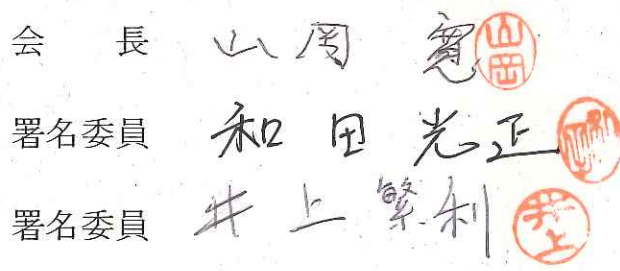 会　　長　山岡　寛 山岡
署名委員　和田光正
署名委員　井上繁利 井上